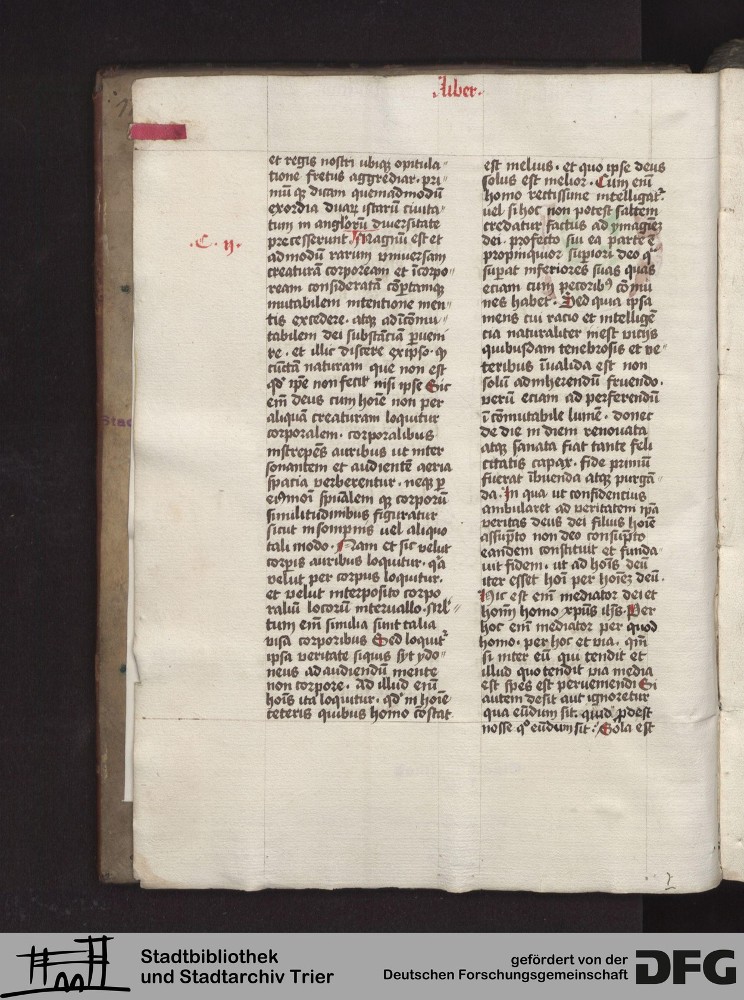 Liber.
et regis nostri ubiqꝫ opitula〃
tione fretus aggrediar. pri〃
mũ qꝫ dicam quemadmodũ
exordia duaꝝ istarũ ciuita〃
tum in angloꝝũ diuersitate
precesserunt Magnũ est et
.C. ij.
admodũ rarum vniuersam
creaturã corpoream et ĩcorpo〃
ream consideratã cõptamqꝫ
mutabilem intentione men〃
tis excedere. atqꝫ adĩcõmu〃
tabilem dei substãciã ꝑueni
re. et illic discere ex ipso. qꝫ
cũctã naturam que non est
qd̾ ip̃e non fecit nisi ipse Sic
em̃ deus cum hoĩe non per
aliquã creaturam loquitur
corporalem. corporalibus
instrepẽs auribus ut inter
sonantem et audientẽ aeria
spacia verberentur. neqꝫ ꝑ
eiꝰmoĩ spũalem qꝫ corporũ
similitudinibus figuratur
sicut in sompnis uel aliquo
tali modo. Nam et sic velut
corꝑis auribus loquitur. q̃a
velut per corpus loquitur.
et velut interposito corpo
raliũ locorũ interuallo. Ml̃〃
tum em̃ similia sunt talia
visa corporibus Sed loquit̾
ipsa veritate siquis syt ydo〃
neus ad audiendũ mente
non corpore. Ad illud em̃
hoĩs ita loquitur. qd̾ in hoĩe
ceteris quibus homo cõstat
est melius. et quo ipse deus
solus est melior. Cum em̃
homo rectissime intelligat̾.
uel si hoc non potest saltem
credatur factus ad ymaginẽ
dei. profecto siu ea parte ẽ
propinquior suꝑiori deo q̃
suꝑat inferiores suas quas
eciam cum pecoribꝰ cõmu
nes habet. Sed quia ipsa
mens cui racio et intelligẽ
tia naturaliter inest vicijs
quibusdam tenebrosis et ve〃
teribus ĩualida est non
solũ adinherendũ fruendo.
verũ eciam ad perferendũ
ĩcõmutabile lumẽ. donec
de die in diem renouata
atqꝫ sanata fiat tante feli
citatis capax. fide primũ
fuerat ĩbuenda atqꝫ purgã〃
da. In qua ut confidencius
ambularet ad veritatem ip̃a
veritas deus dei filius hoĩe
assũpto non deo consũpto
eandem constituit et funda〃
uit fidem. ut ad hoĩs deũ
iter esset hoĩ per hoĩeꝫ deũ.
Hic est em̃ mediator dei et
hoĩm homo xp̃us ih̃s. Per
hoc em̃ mediator per quod
homo. per hoc et via. qm̃
si inter eũ qui tendit et
illud quo tendit via media
est spes est perueniendi Si
autem desit aut ignoretur
qua eũdum sit. quid ꝓdest
nosse qͦ eũdum sit. Sola est
Stadtbibliothek
und Stadtarchiv Trier
gefördert von der
Deutschen Forschungsgemeinschaft
DFG